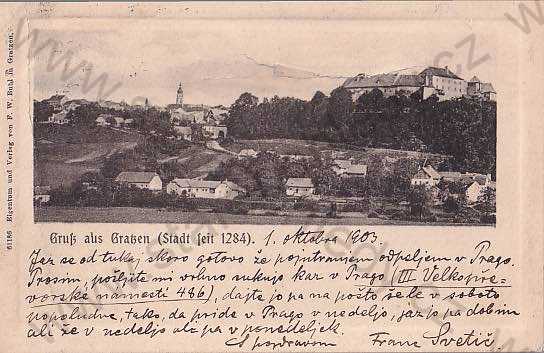 61186 Eigentum und Verlag von F. W. Buhl in Gratzen.
Gruß aus Gratzen (Stadt seit 1284). 1. oktobra 1903
Jaz se od tukaj, skoro gotovo že pojutranjem odpeljem v Prago.
Prosim, pošljite mi vrhno suknjo kar v Prago (III Velkopře-
vorské náměstí 486), dajte jo pa na pošto še le v soboto
popoludne, tako, da pride v Prago v nedeljo, jaz jo pa dobim
ali že v nedeljo ali pa v ponedeljek.
S pozdravom Franc Svetič